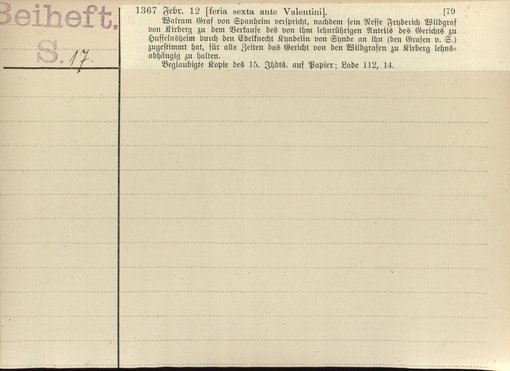 Beiheft.
S. 17.
1367 Febr. 12 [feria sexta ante Valentini]. [79
Walram Graf von Spanheim verspricht, nachdem sein Neffe Fryderich Wildgraf
von Kirberg zu dem Verkaufe des von ihm lehnrührigen Anteils des Gerichts zu
Huffelnsheim durch den Edelknecht Kyndelin von Synde an ihn (den Grafen v. S.)
zugestimmt hat, für alle Zeiten das Gericht von den Wildgrafen zu Kirberg lehns-
abhängig zu halten.
Beglaubigte Kopie des 15. Jhdts. auf Papier; Lade 112, 14.